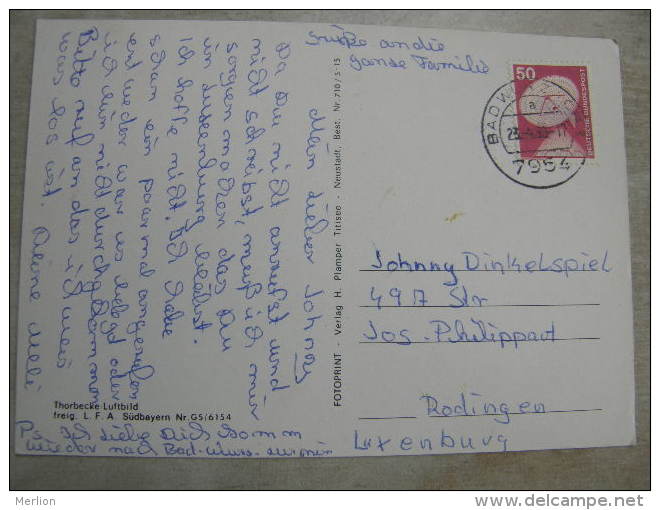 Grüße an die
ganze Familie
Mein lieber Johnny
Da du nicht anrufst und
nicht schreibst, muß ich mir
sorgen machen das Du
in
Ich hoffe nicht. Ich habe
schon ein paarmal angerufen
entweder war es belegt oder
ich bin nicht durchgekommen
Bitte ruf an das ich weis
was los ist. Deine
Ps. Ich liebe Dich komm
wieder nach Bad-Wurz. zu mir
Thorbecke-Luftbild
freig. L. F. A. Südbayern Nr. G5/6154
FOTOPRINT - Verlag H. Plamper Titisee - Neustadt, Best. Nr. 710/S-15
50
DEUTSCHE BUNDESPOST
BAD
7954
Johnny Dinkelspiel
497 Str
Jos. Philippart
Rodingen
Luxenburg
Merlion
delcampe.net